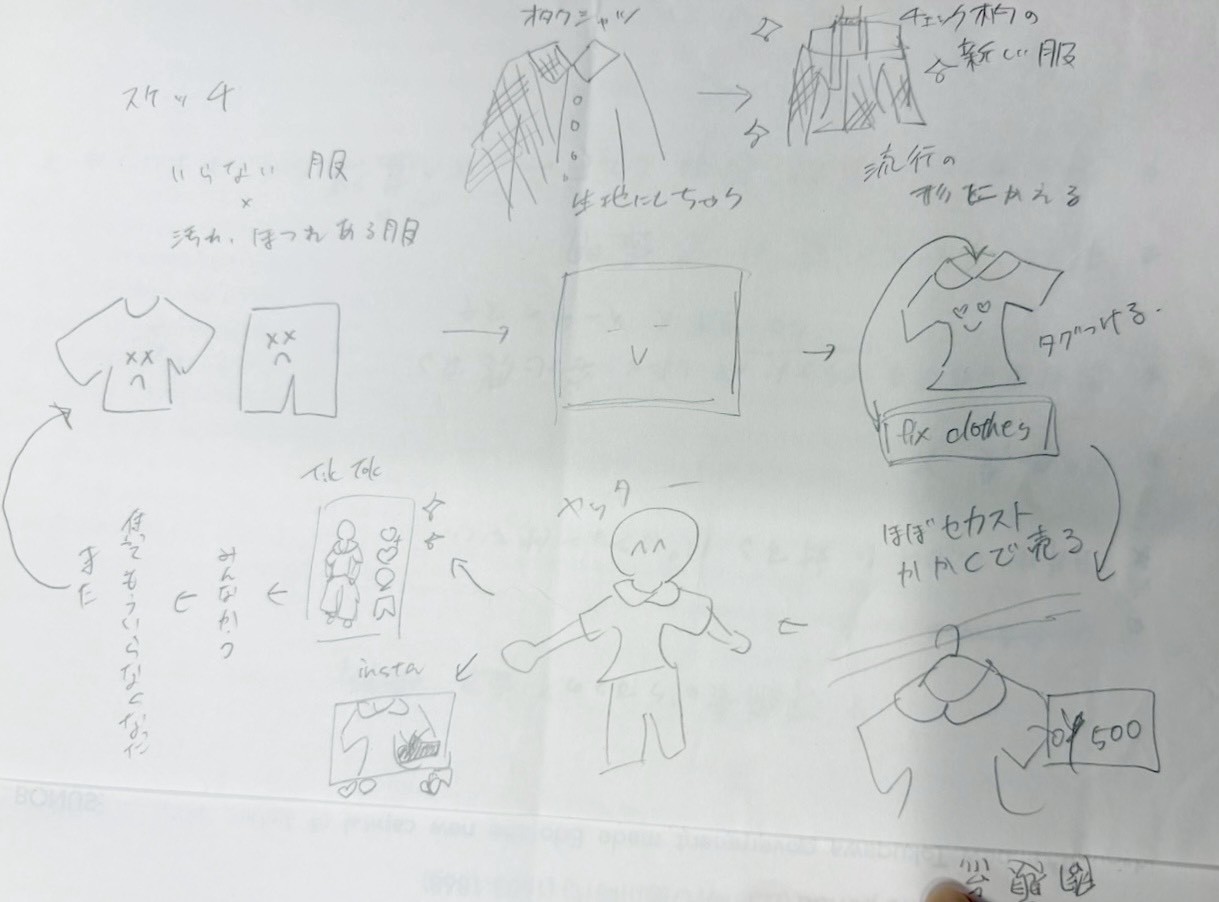 オタクシャツ
チェック柄の
新しい服
スケッチ
いらない服
×
汚れ、ほつれある服
生地にしちゃう
流行の
形にかえる
タグつける.
fix clothes
Tik Tok
ヤッター
ほぼセカスト
かかくで売る
みんなかう
使ってもういらなくなった
また
insta
¥500